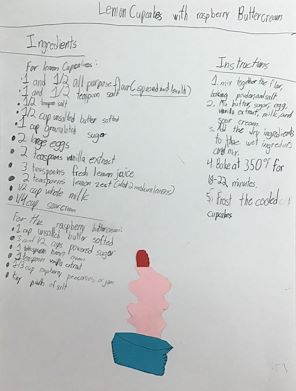 Lemon Cupcakes with raspberry Buttercream
Ingredients
For lemon Cupcakes:
1 and 1/2 all purpose flour
1 and 1/2 teaspoon salt
1/2 teaspoon salt
1/2 cup unsalted butter softed
1 cup granulated sugar
2 large eggs
2 teaspoons vanilla extract
3 teaspoons fresh lemon juice
2 teaspoons lemon zest
1/2 cup whole milk
1/4 cup sour cream
For the raspberry buttercream:
1 cup unsalted butter softed
3 and 1/2 cups powered sugar
1 tablespoon heavy
1 teaspoon vanilla extract
1/3 cup raspberry preserves or jam
tiny pinch of salt
Instructions
1. mix together the flour,
baking powder and salt
2. Mix butter, sugar, egg,
vanilla extract, milk, and
sour cream.
3. Add the dry ingredients
to the wet ingredients
and mix.
4. Bake at 350°F for
18-22 minutes.
5. Frost the cooled
cupcakes